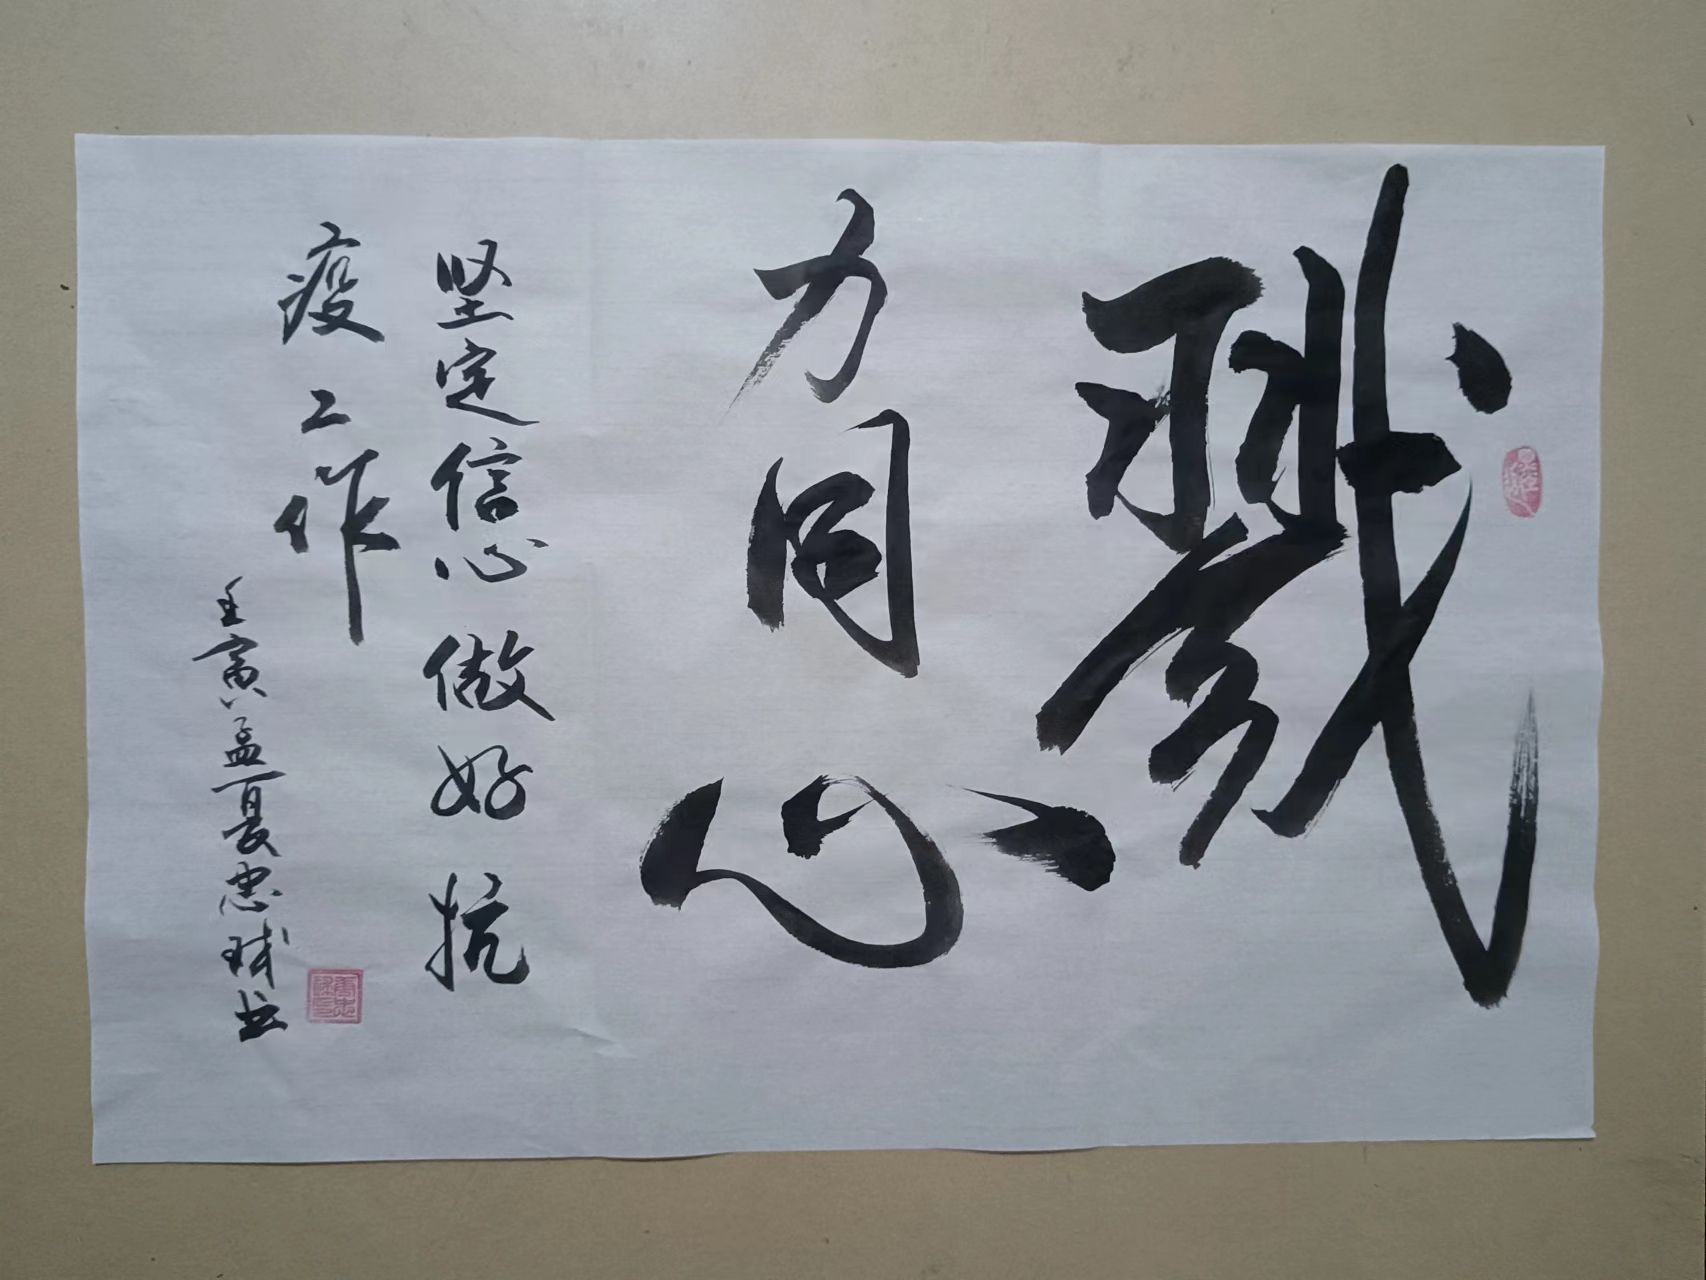 戮
力同心
坚定信心做好抗
疫工作
壬寅孟夏忠球书